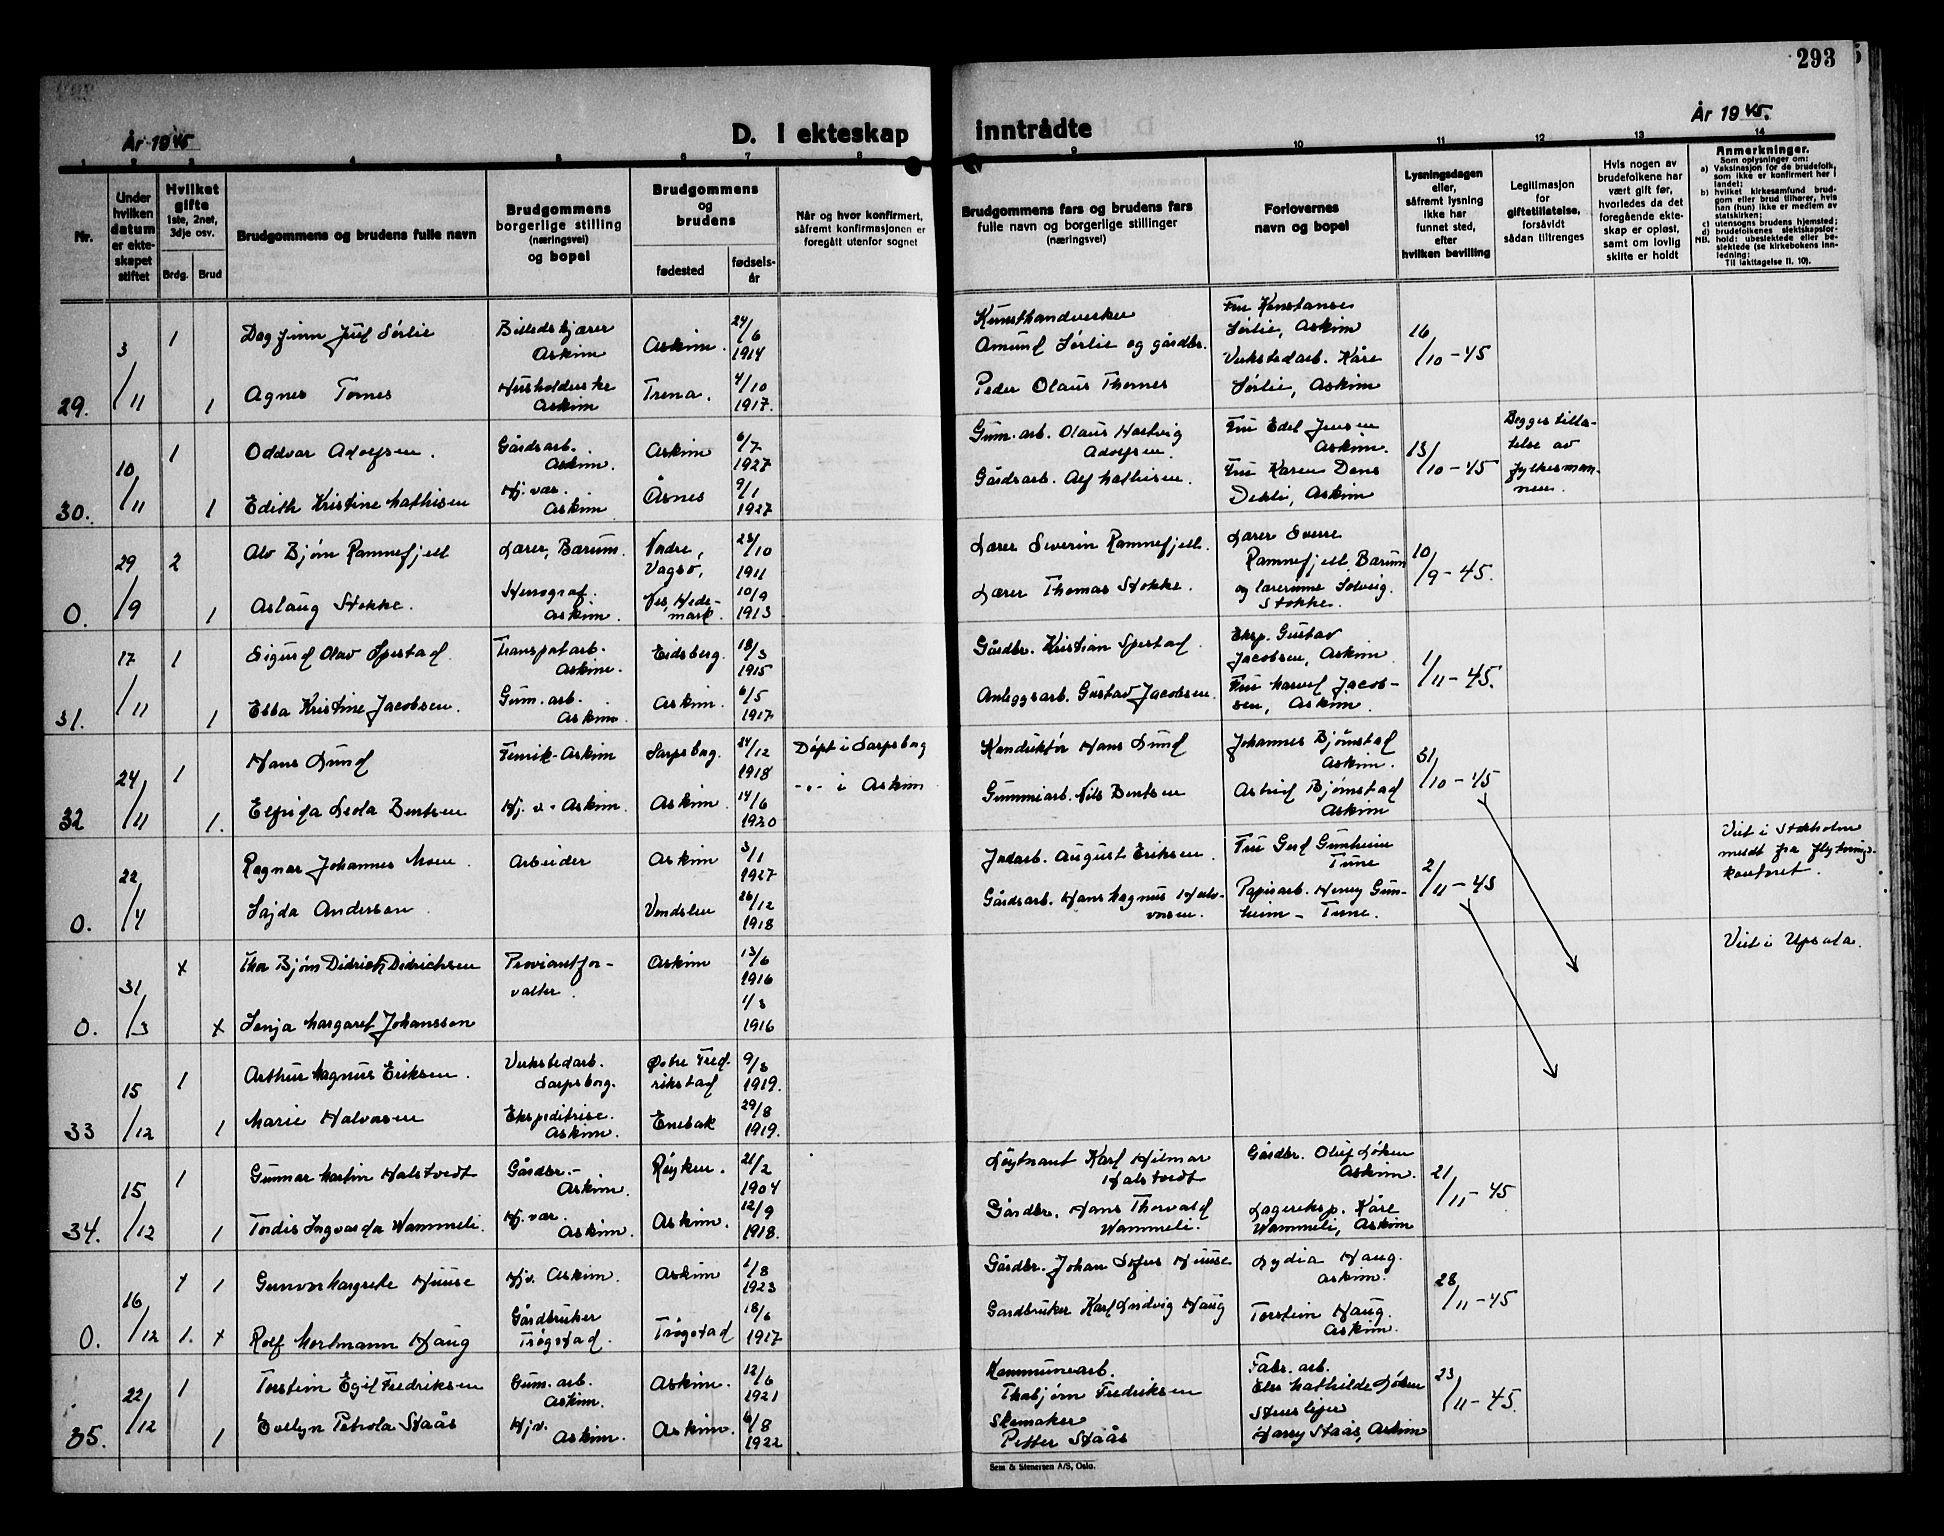 293
År 1945
D. I ekteskap inntrådte
År 1945.
1 2 3 4 5 6 7 8 9 10 11 12 13 14
Nr.
Under hvilken datum er ekteskapet stiftet
Hvilket gifte
1ste, 2net, 3dje osv.
Brdg. Brud
Brudgommens og brudens fulle navn
Brudgommens borgerlige stilling (næringsvei) og bopel
Brudgommens og brudens
fødested
fødselsår
Når og hvor konfirmert, såfremt konfirmasjonen er foregått utenfor sognet
Brudgommens fars og brudens fars fulle navn og borgerlige stillinger (næringsvei)
Forlovernes navn og bopel
Lysningsdagen eller, såfremt lysning ikke har funnet sted, efter hvilken bevilling
Legitimasjon for giftetillatelse, forsåvidt sådan tiltrenges
Hvis nogen av brudefolkene har vært gift før, hvorledes da det foregående ekteskap er opløst, samt om lovlig skifte er holdt
Anmerkninger.
Som oplysninger om:
a) Vaksinasjon for de brudefolk, som ikke er konfirmert her i landet;
b) hvilket kirkesamfund brudgom eller brud tilhører, hvis han (hun) ikke er medlem av statskirken;
c) utensogns brudens hjemsted;
d) brudefolkenes slektskapsforhold: ubeslektede eller beslektede (se kirkebokens innledning;
NB. Til iakttagelse II. 10).
29. 3/11 1 Dagfinn Juul Sørlie Billedskjærer Askim Askim. 24/6 1914 Kunsthandverker Amund Sørlie og gårdbr. Fru Konstanse Sørlie, Askim 16/10-45
1 Agnes Tornes Husholderske Askim Trena. 4/10 1917. Peder Olaus Thornes Verkstedarb. Kåre Sørlie, Askim
30. 10/11 1 Oddvar Adolfsen. Gårdsarb. Askim. Askim 6/7 1927 Gum.arb. Olaus Hartvig Adolfsen. Fru Edel Jensen Askim. 13/10-45 Begges tillatelse av fylkesmannen.
1 Edith Kristine Mathisen Hj.vær. Askim Åsnes 9/1 1927 Gårdsarb. Alf Mathisen. Fru Karen Dons Dehli, Askim
0. 29/9 2 Alv Bjørn Ramnefjell Lærer, Bærum. Nordre, Vagsø, 28/10 1911 Lærer Severin Ramnefjell. Lærer Sverre Ramnefjell, Bærum 10/9-45.
1 Aslaug Stokke. Stenograf. Askim. Nes, Hedemark. 10/9 1913 Lærer Thomas Stokke. og lærerinne Solveig Stokke.
31. 17/11 1 Sigurd Olav Spestad. Transportarb. Askim. Eidsberg. 18/3 1915 Gårdbr. Kristian Spestad. Eksp. Gustav Jacobsen, Askim 1/11-45.
1 Ebba Kristine Jacobsen. Gum.arb. Askim. Askim. 6/5 1917 Anleggsarb. Gustav Jacobsen. Fru Jacobsen, Askim.
32 24/11 1 Hans Lund Fenrik-Askim Sarpsborg. 24/12 1918 Døpt i Sarpsborg Konduktør Hans Lund Johannes Bjørnstad Askim. 31/10-45
1. Elfrida Leola Bentsen Hj.v.-Askim. Askim. 14/6 1920 -"- i Askim Gummiarb. Nils Bentsen Astrid Bjørnstad Askim
0. 22/4 Ragnar Johannes Moen. Arbeider Askim 3/1 1927 Jodarb. August Eriksen. Fru Gerd Gunheim Tune 2/11-45 Viet i Stokholm meldt fra flyktningskontoret.
Sajda Anderson. Vendslen 26/12 1918 Gårdsarb. Hans Magnus Halvorsen. Papirarb. Henry Gunheim - Tune.
0. 31/3 x Thor Bjørn Didrich Didrichsen Proviantforvalter. Askim 13/6 1916 Viet i Upsala.
x Senja Margaret Johansson 1/3 1916
33 15/12 1 Arthur Magnus Eriksen. Verkstedarb. Sarpsborg. Østre Fredrikstad 9/3 1919.
1 Marie Halvorsen Ekspeditrise. Askim. Enebak 29/8 1919.
34. 15/12 1 Gunnar Martin Halstvedt Gårdbr.- Askim. Røyken. 21/2 1904 Løytnant Karl Hilmar Halstvedt Gårdbr. Oluf Løken Askim. 21/11-45
1 Tordis Ingvarda Wammeli. Hj.vær. Askim. Askim. 12/9 1918. Gårdbr. Hans Thorvald Wammeli. Lagereksp. Kåre Wammeli, Askim
0. 16/12 x 1 Gunvor Margrete Huuse Hjv. Askim. Askim 1/8 1923 Gårdbr. Johan Sofus Huuse Lydia Haug. Askim. 28/11-45
1. x Rolf Mortmann Haug Gårdbruker Trøgstad. Trøgstad 18/6 1917 Gardbruker Karl Ludvig Haug Torstein Haug. Askim.
35. 22/12 1 Torstein Egil Fredriksen Gum.arb. Askim. Askim. 12/6 1921 Kommunearb. Thorbjørn Fredriksen Fabr.arb. Else Mathilde Løken 23/11-45.
1 Evelyn Petrola Staås Hjv. Askim. Askim. 6/8 1922 Skomaker Petter Staås Harry Staås, Askim
Sem & Stenersen A/S, Oslo.